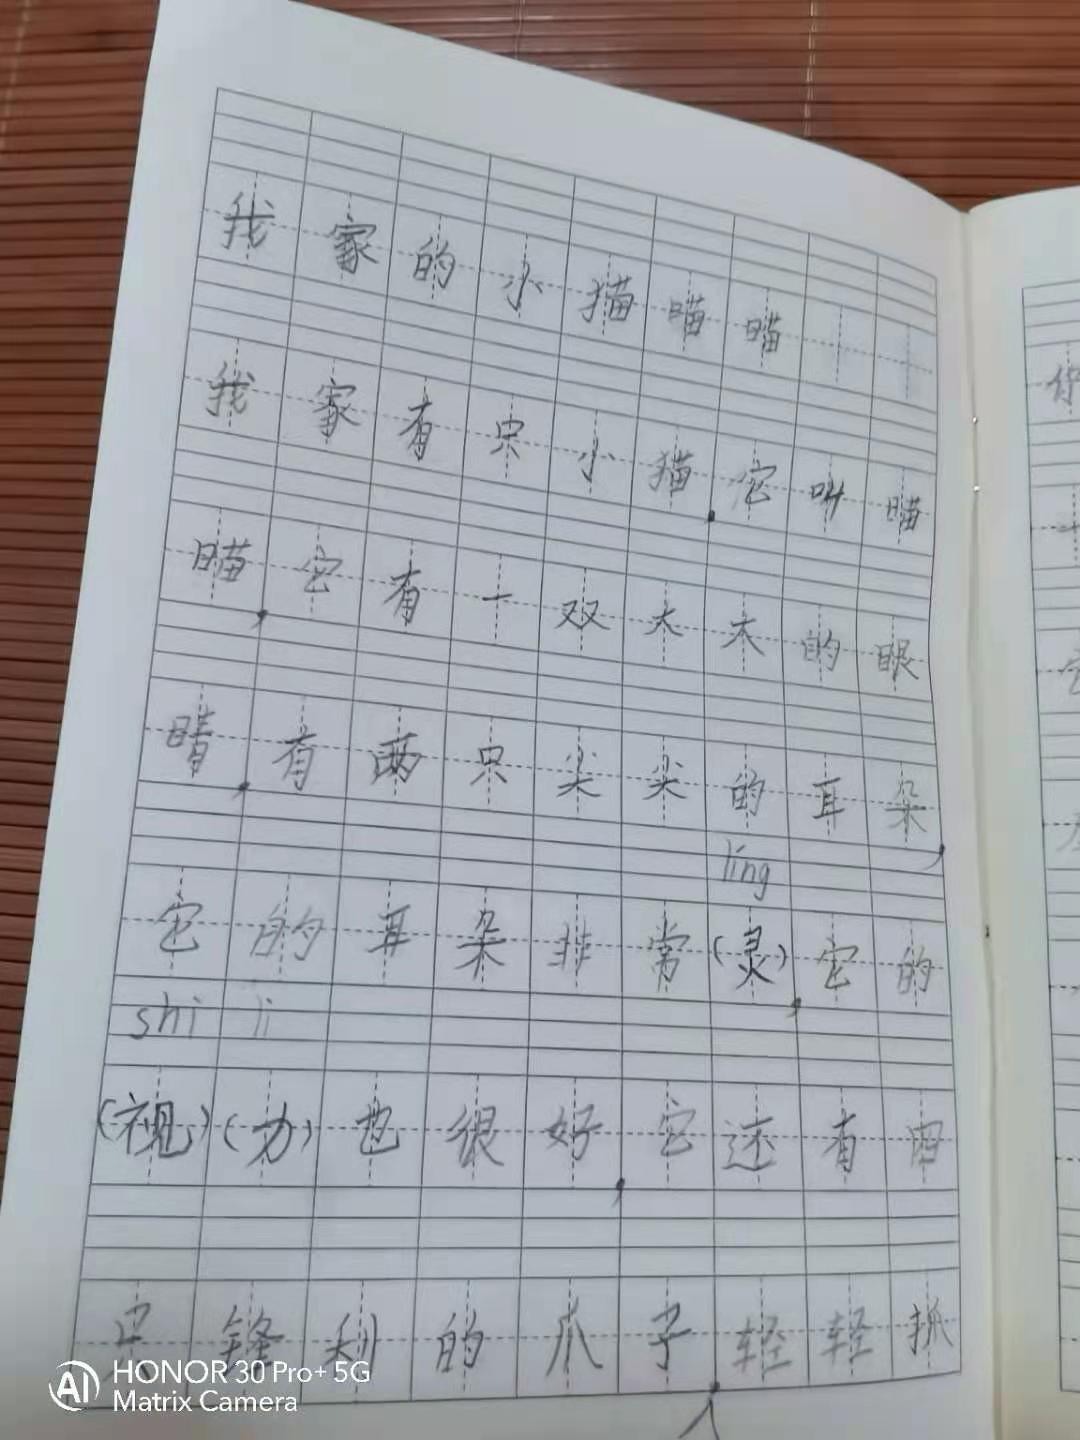 我家的小猫瞄瞄
我家有只小猫,它叫瞄
瞄,它有一双大大的眼
睛,有两只尖尖的耳朵,
líng
它的耳朵非常(灵),它的
shi li
(视)(力)也很好,它还有四
只锋利的爪子,轻轻抓
HONOR 30 Pro+ 5G
Matrix Camera